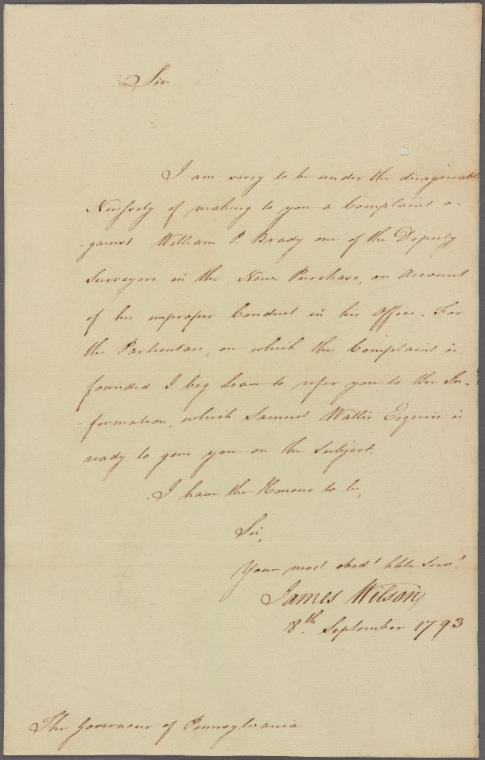 Sir
I am sorry to be under the disagreeable
Necessity of making to you a Complaint a-
-gainst William P. Brady one of the Deputy
Surveyors in the New Purchase, on Account
of his improper Conduct in his Office. For
the Particulars, on which the Complaint is
founded I beg Leave to refer you to the In-
-formation, which Samuel Wallis Esquire is
ready to give you on the Subject.
I have the Honour to be,
Sir,
Your most obedt hble Servt
James Wilson
8th September 1793
The Governour of Pennsylvania